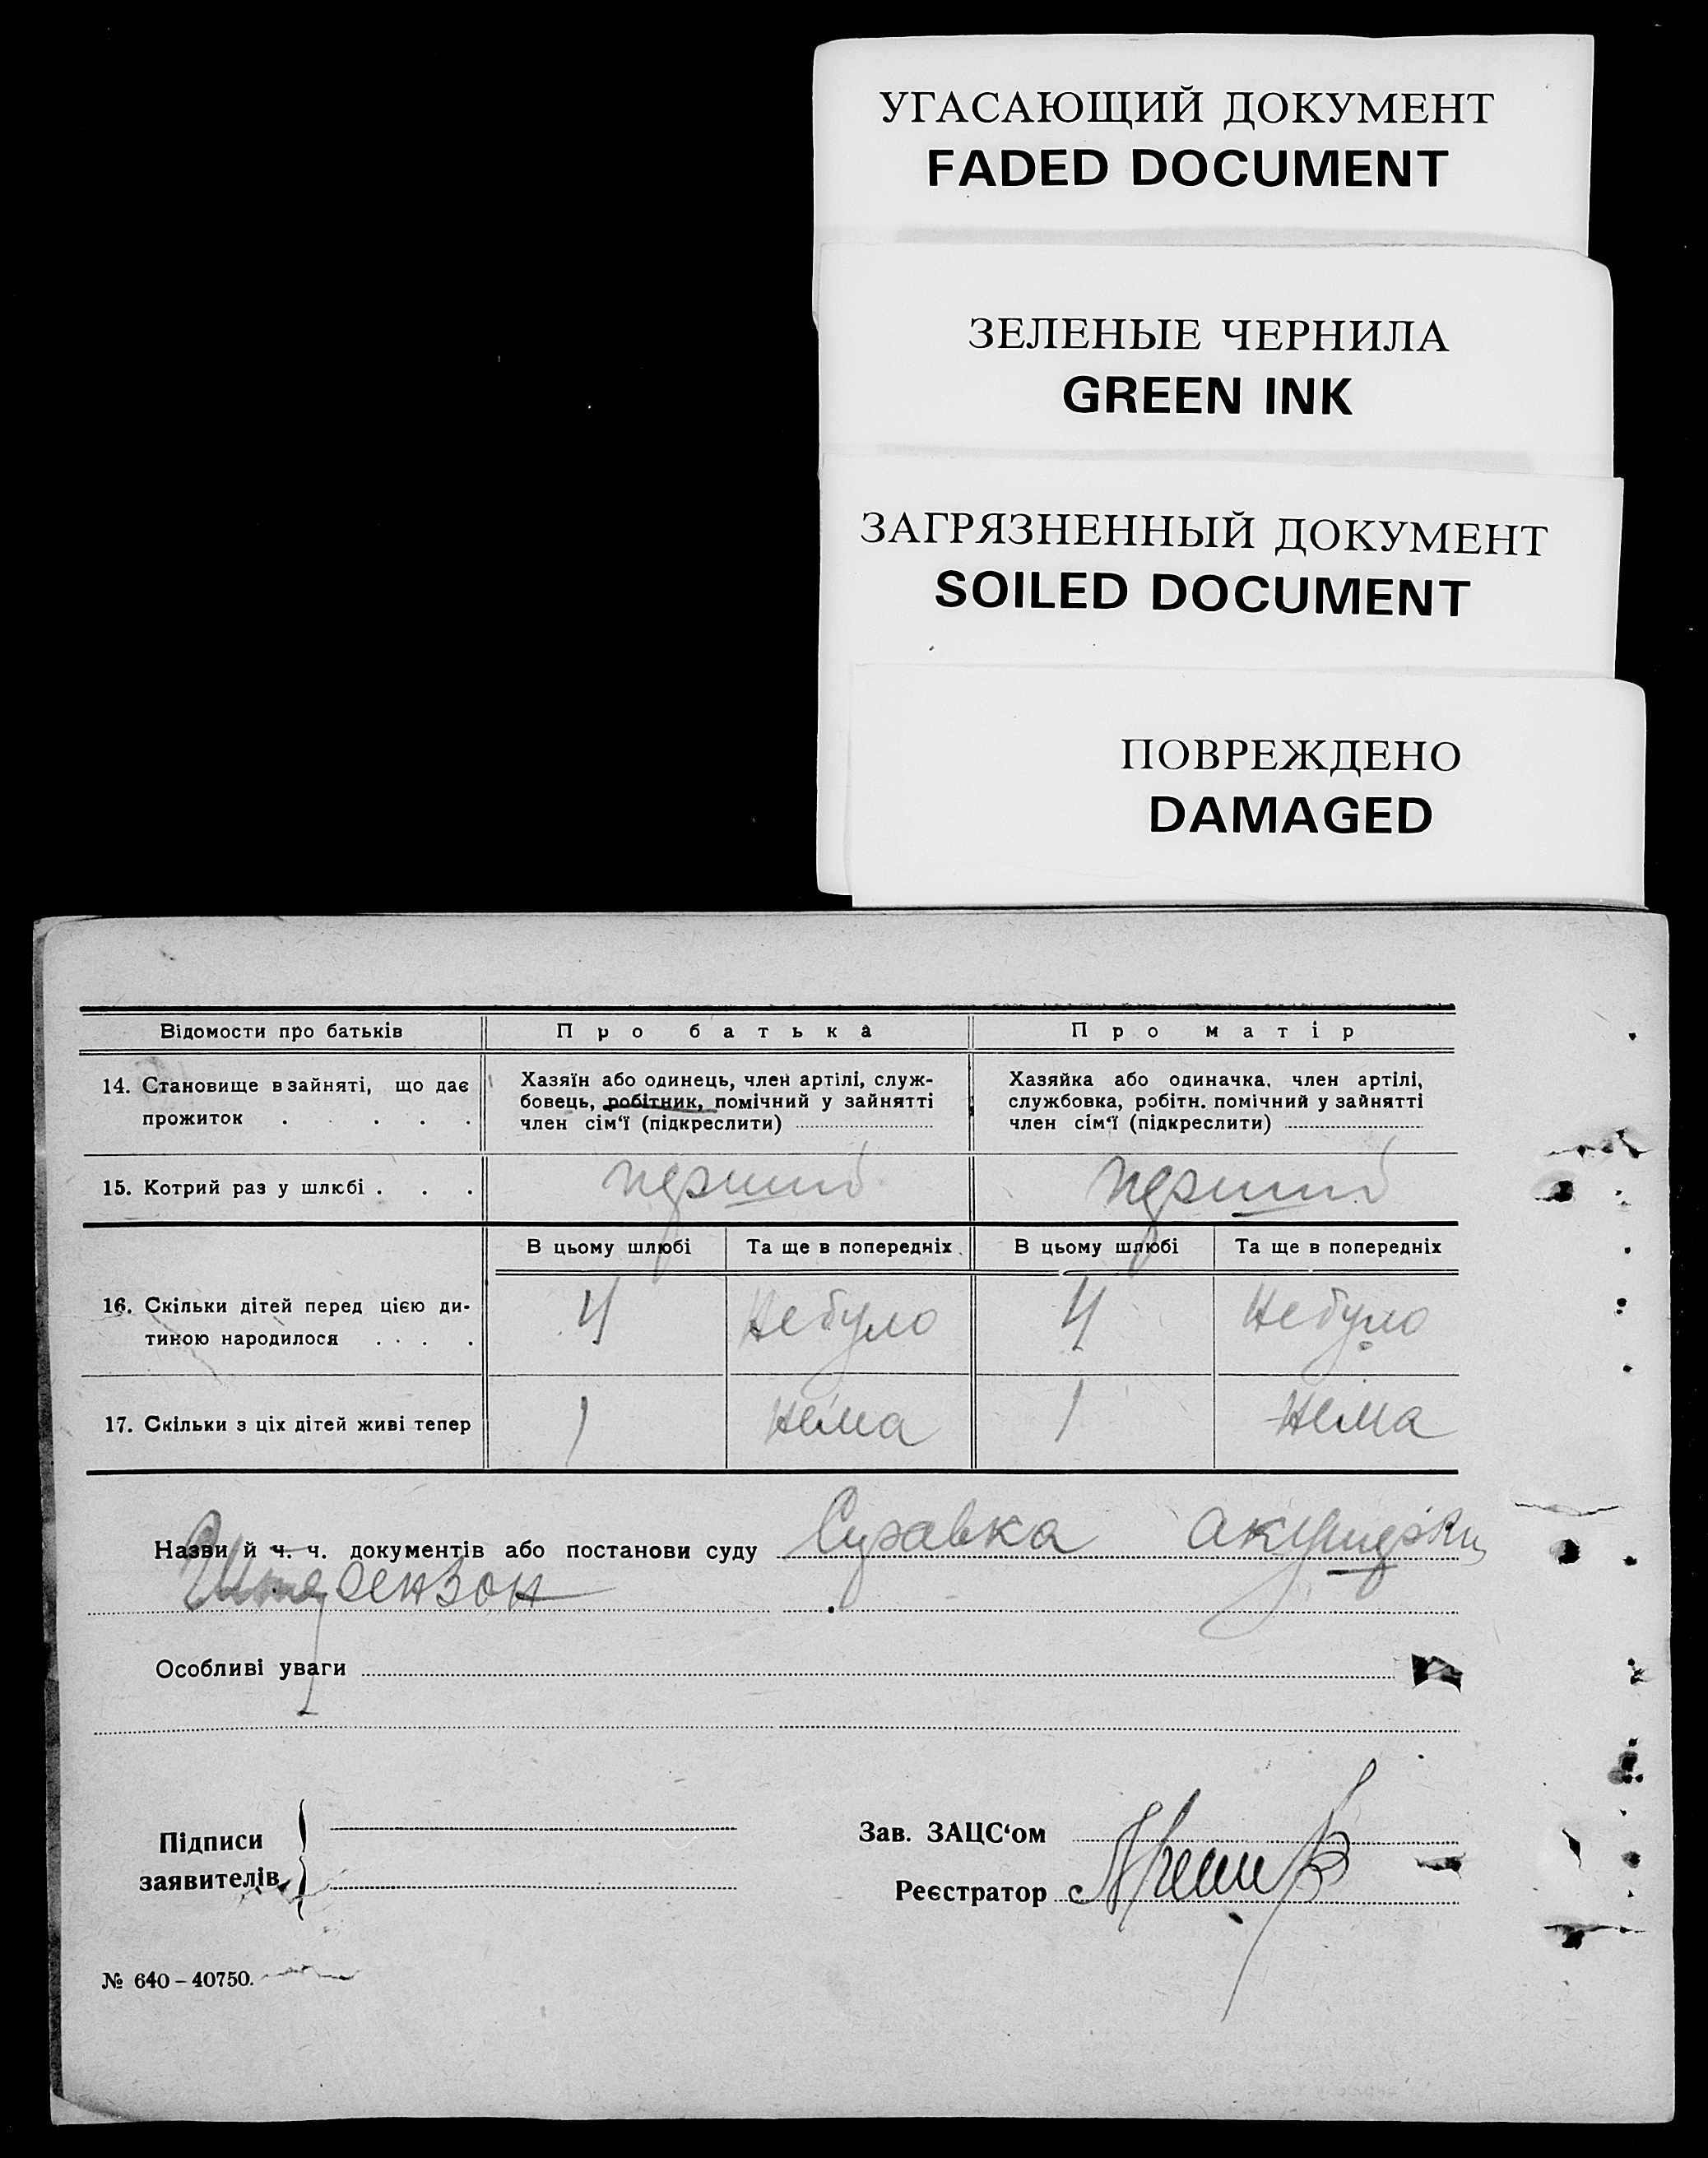 УГАСАЮЩИЙ ДОКУМЕНТ
FADED DOCUMENT
ЗЕЛЕНЫЕ ЧЕРНИЛА
GREEN INK
ЗАГРЯЗНЕННЫЙ ДОКУМЕНТ
SOILED DOCUMENT
ПОВРЕЖДЕНО
DAMAGED
Відомости про батьків Про батька Про матір
14. Становище в зайняті, що дає прожиток . . . .
Хазяїн або одинець, член артілі, служ-
бовець, робітник, помічний у зайнятті
член сім'ї (підкреслити)
Хазяйка або одиначка, член артілі,
службовка, робітн. помічний у зайнятті
член сім'ї (підкреслити)
15. Котрий раз у шлюбі . . . перший перший
В цьому шлюбі Та ще в попередніх В цьому шлюбі Та ще в попередніх
16. Скільки дітей перед цією ди-
тиною народилося . . . . 4 Небуло 4 Небуло
17. Скільки з ціх дітей живі тепер 1 Нема 1 Нема
Назви й ч. ч. документів або постанови суду Справка акушерки
Особливі уваги
Підписи
заявителів
Зав. ЗАЦС'ом
Реєстратор
№ 640 – 40750.